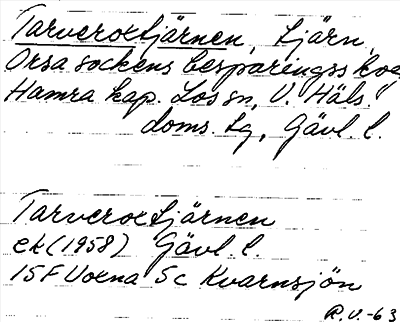 Tarverotjärnen, tjärn,
Orsa sockens besparingsskog
Hamra kap. Los sn, V. Häls.
doms. lg, Gävl. l.
Tarverotjärnen
ek (1958) Gävl. l.
15F Voxna 5c Kvarnsjön
R.V.-63